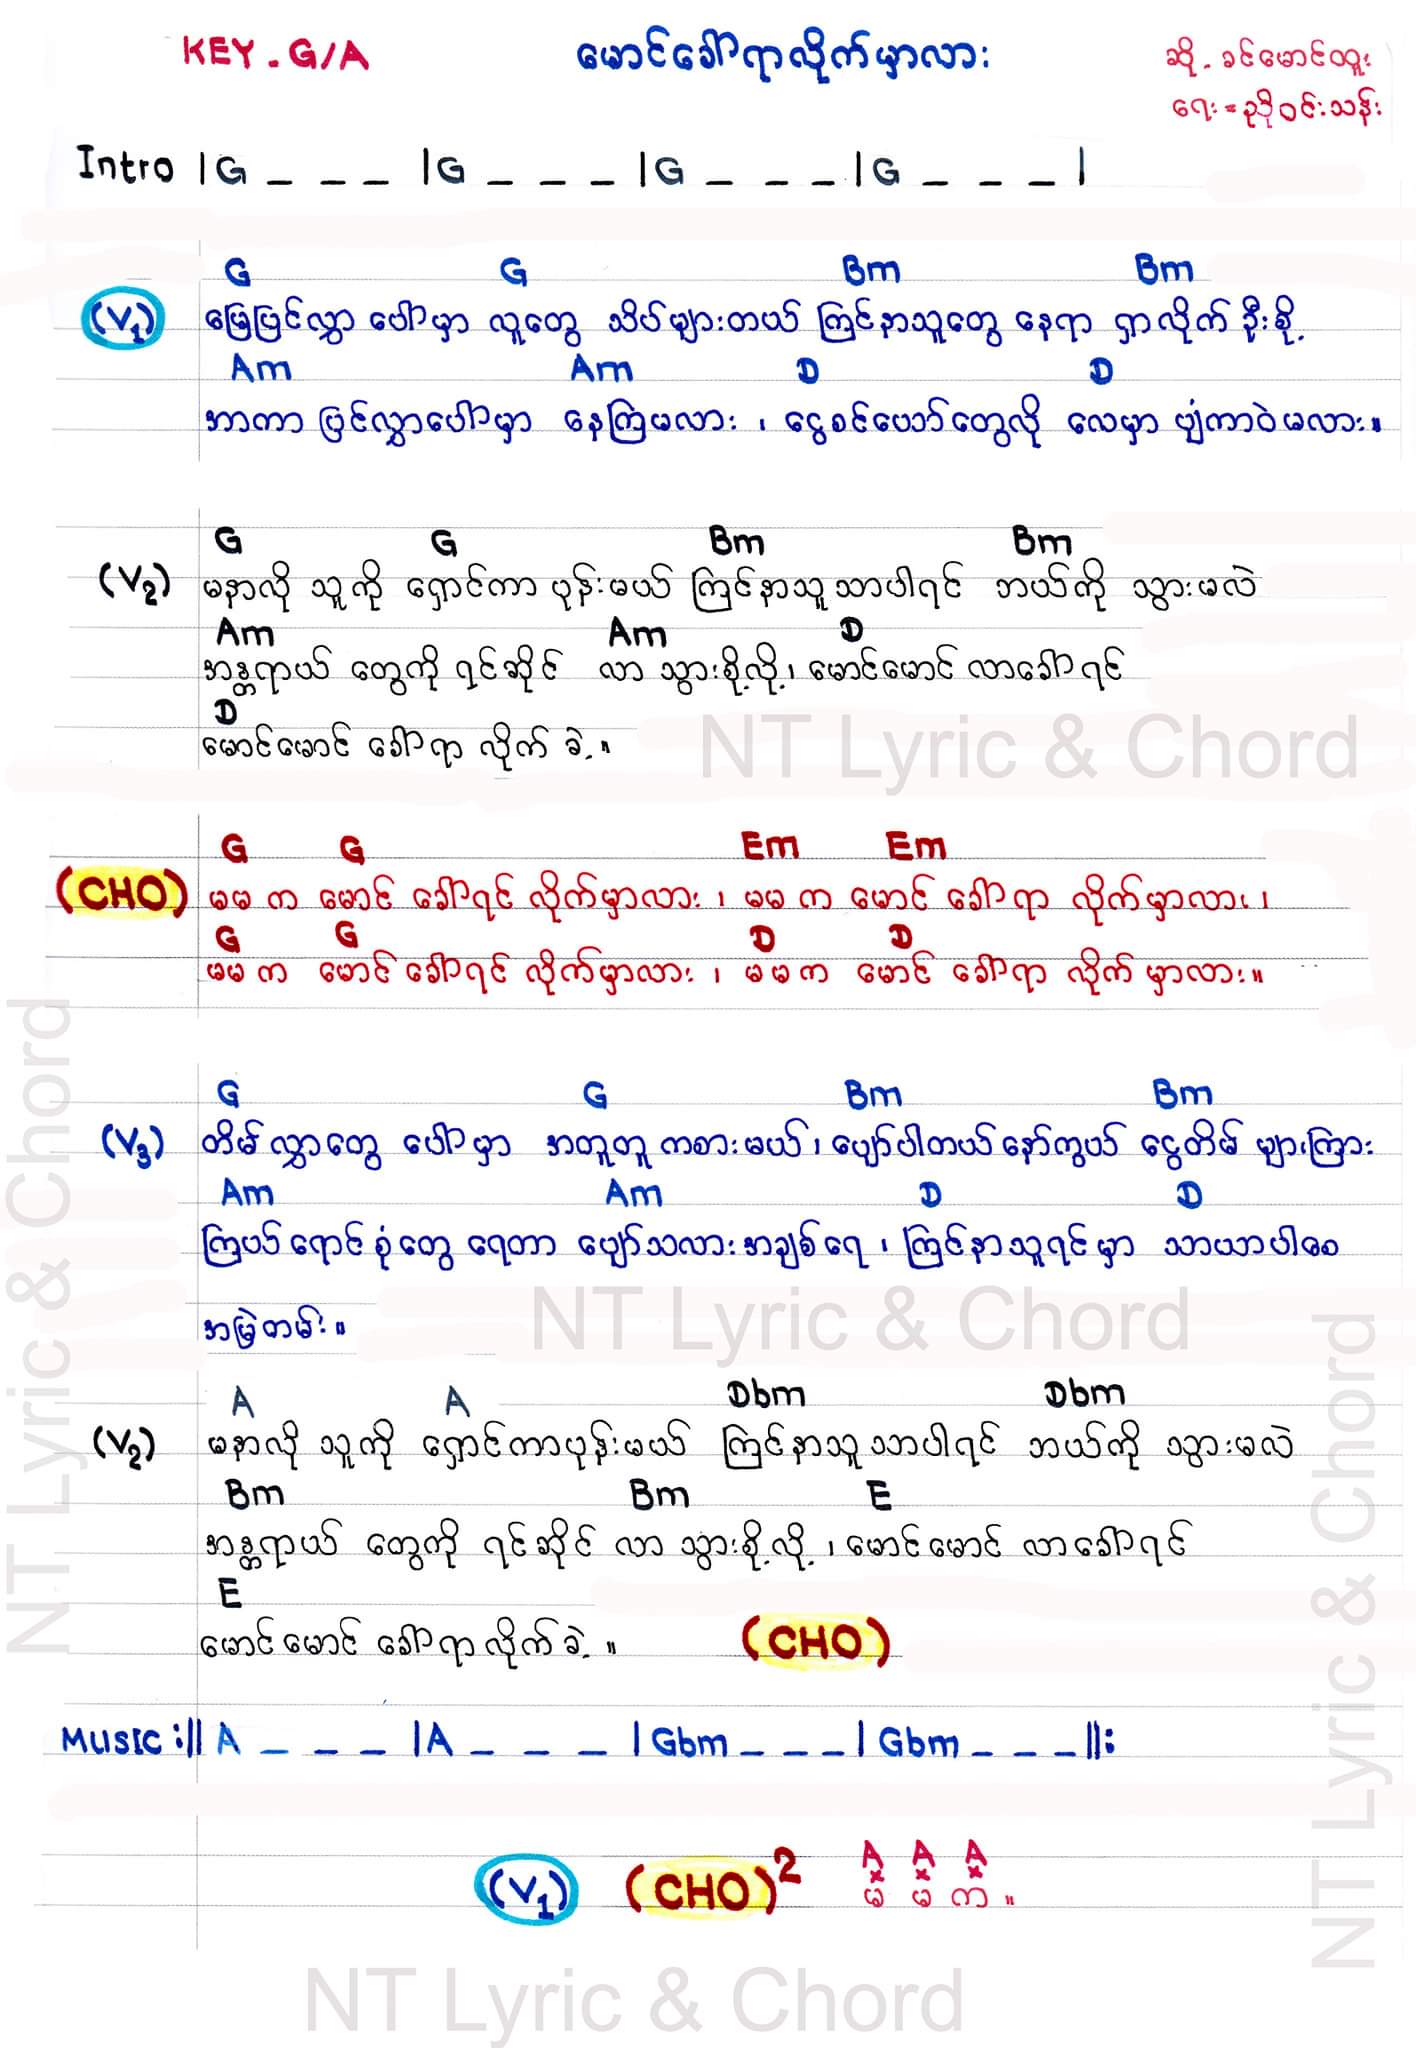 KEY. G/A မောင်ခေါ်ရာလိုက်မှာလား ဆို - ခင်မောင်ထူး
ရေး = ညိုဝင်းသန်း
Intro |G _ _ _ |G _ _ _ |G _ _ _ |G _ _ _ |
G G Bm Bm
(V1) မြေပြင်လွှာ ပေါ်မှာ လူတွေ သိပ်များတယ် ကြင်နာသူတွေ နေရာ ရှာလိုက် ဦးစို့
Am Am D D
အာကာ ပြင်လွှာပေါ်မှာ နေကြမလား ၊ ငွေစင်ယော်တွေလို လေမှာ ပျံကာဝဲမလား။
G G Bm Bm
(V2) မနာလို သူကို ရှောင်ကာ ပုန်းမယ် ကြင်နာသူသာပါရင် ဘယ်ကို သွားမလဲ
Am Am D
အန္တရာယ် တွေကို ရင်ဆိုင် လာ သွားစို့လို့၊ မောင်မောင် လာခေါ်ရင်
D
မောင်မောင် ခေါ်ရာ လိုက် ခဲ့။
NT Lyric & Chord
G G Em Em
(CHO) မမ က မောင် ခေါ်ရင် လိုက်မှာလား ၊ မမ က မောင် ခေါ်ရာ လိုက်မှာလား ၊
G G D D
မမ က မောင် ခေါ်ရင် လိုက်မှာလား ၊ မမက မောင် ခေါ်ရာ လိုက် မှာလား။
G G Bm Bm
(V3) တိမ်လွှာတွေ ပေါ်မှာ အတူတူ ကစားမယ်၊ ပျော်ပါတယ်နော်ကွယ် ငွေတိမ် များကြား
Am Am D D
ကြယ်ရောင်စုံတွေ ရေတာ ပျော်သလားအချစ်ရေ ၊ ကြင်နာသူရင်မှာ သာယာပါစေ
အမြဲတမ်း။
NT Lyric & Chord
A A Dbm Dbm
(V2) မနာလို သူကို ရှောင်ကာပုန်းမယ် ကြင်နာသူသာပါရင် ဘယ်ကို သွားမလဲ
Bm Bm E
အန္တရာယ် တွေကို ရင်ဆိုင် လာ သွားစို့လို့ ၊ မောင်မောင် လာခေါ်ရင်
E
မောင်မောင် ခေါ်ရာလိုက်ခဲ့။ (CHO)
Music :|| A _ _ _ |A _ _ _ | Gbm _ _ _ | Gbm _ _ _ ||:
A A A
(V1) (CHO)2 မ မ က ။
NT Lyric & Chord
NT Lyric & Chord
NT Lyric & Chord